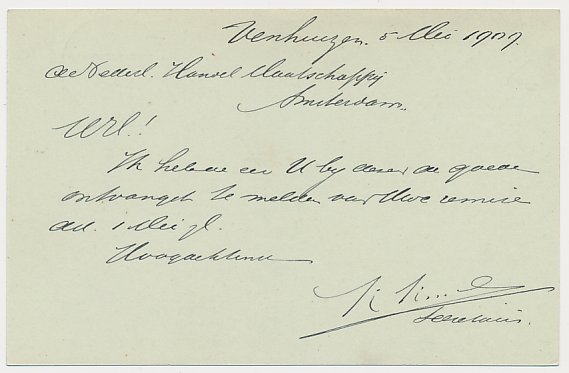 Venhuizen. 5 Mei 1909.
de Nederl. Handel Maatschappij
Amsterdam.
WEd!
Ik heb de eer U bij dezen de goede
ontvangst te melden van Uwe remise
dd. 1 Mei jl.
Hoogachtend
Secretaris.